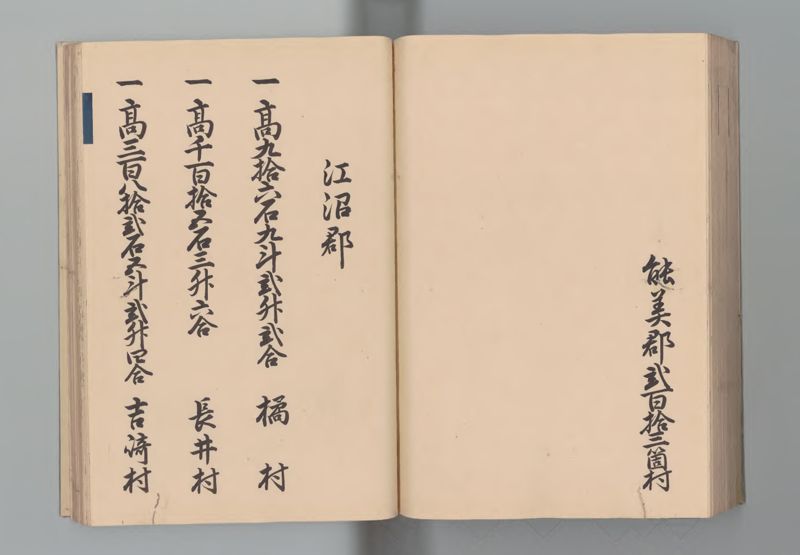 能美郡弐百拾三箇村
江沼郡
一高九拾六石九斗弐升弐合 橘村
一高千百拾五石三升六合 長井村
一高三百八拾弐石五斗弐升四合 吉崎村